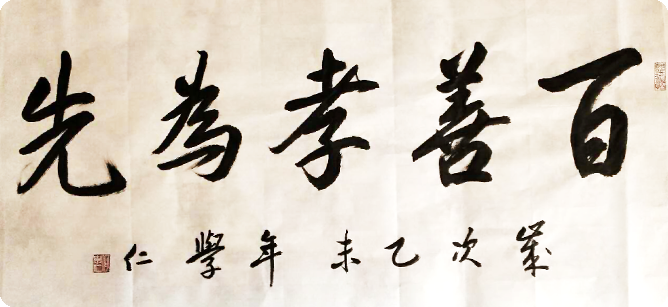 百善孝為先
歲次乙未年學仁